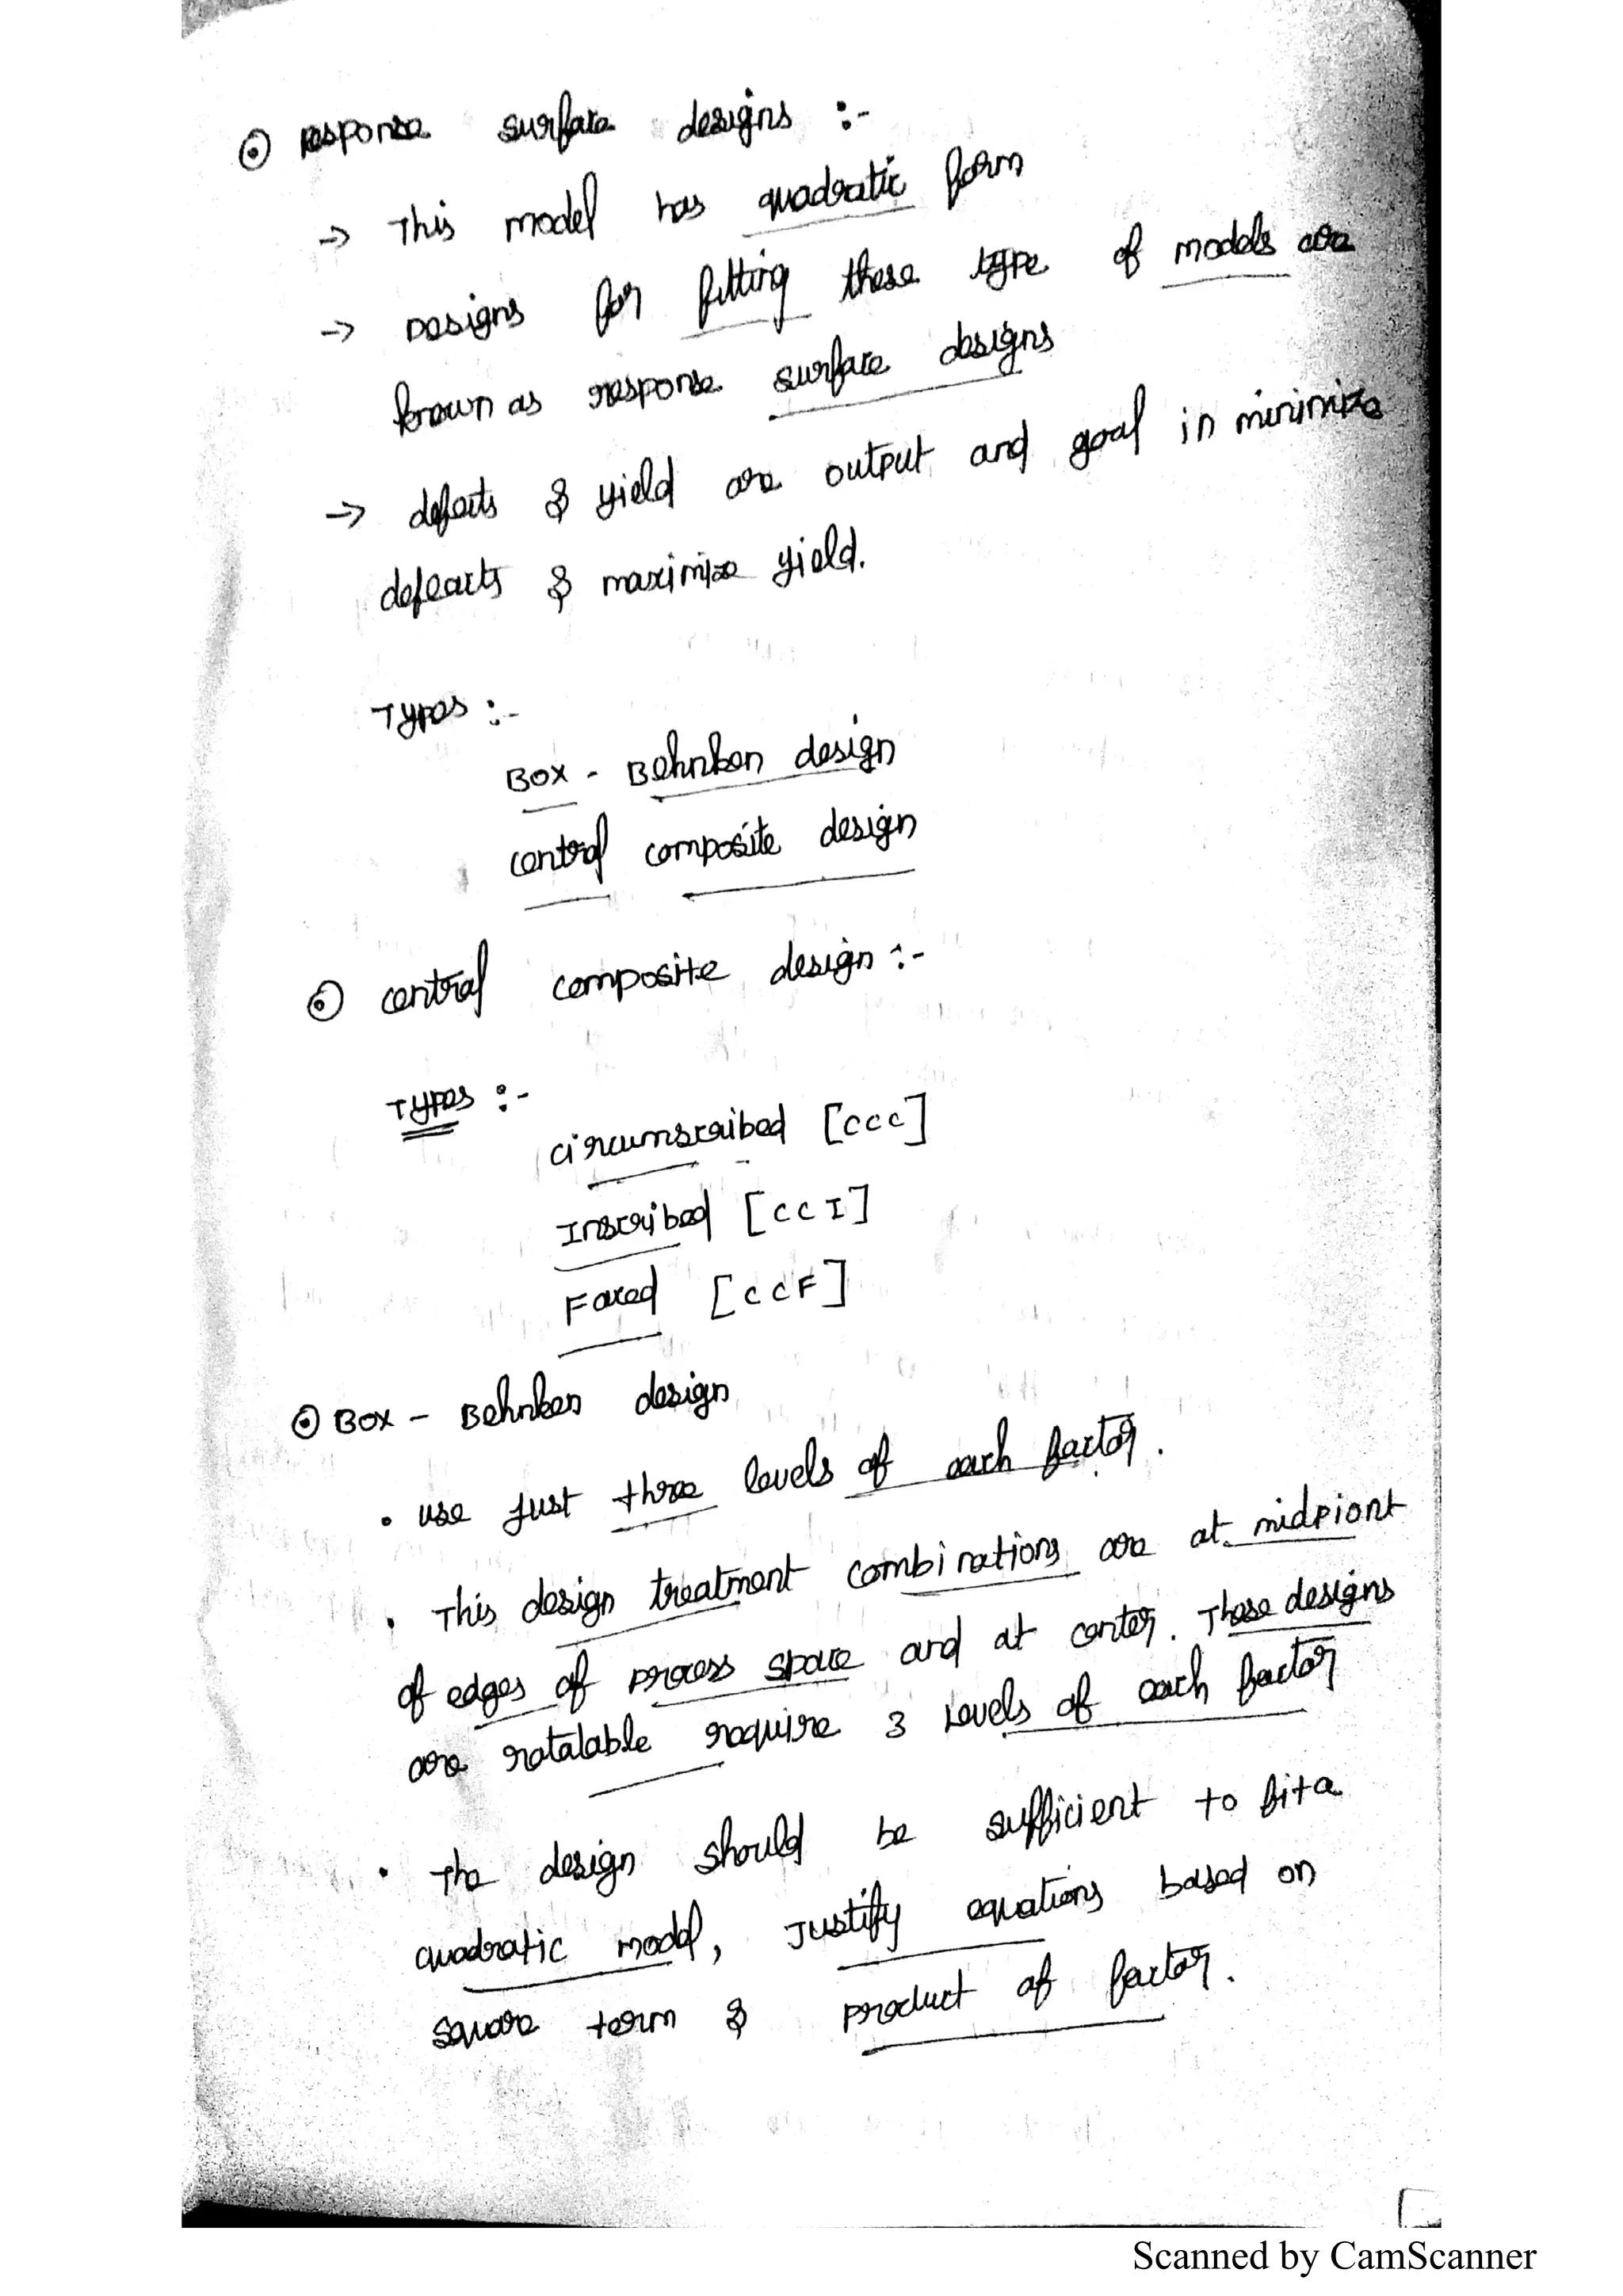 ⊙ Response surface designs :-
→ This model has quadratic form
→ Designs for fitting these type of models are
known as response surface designs
→ defects & yield are output and goal in minimize
defeacts & maximize yield.
Types :-
Box - Behnken design
central composite design
⊙ central composite design :-
Types :-
circumscribed [CCC]
Inscribed [CCI]
Faced [CCF]
⊙ Box - Behnken design
• use just three levels of each factor.
• This design treatment combinations are at midpiont
of edges of process space and at center. These designs
are rotalable require 3 Levels of each factor
• The design should be sufficient to fit a
quadratic model, Justify equations based on
square term & product of factor.
Scanned by CamScanner